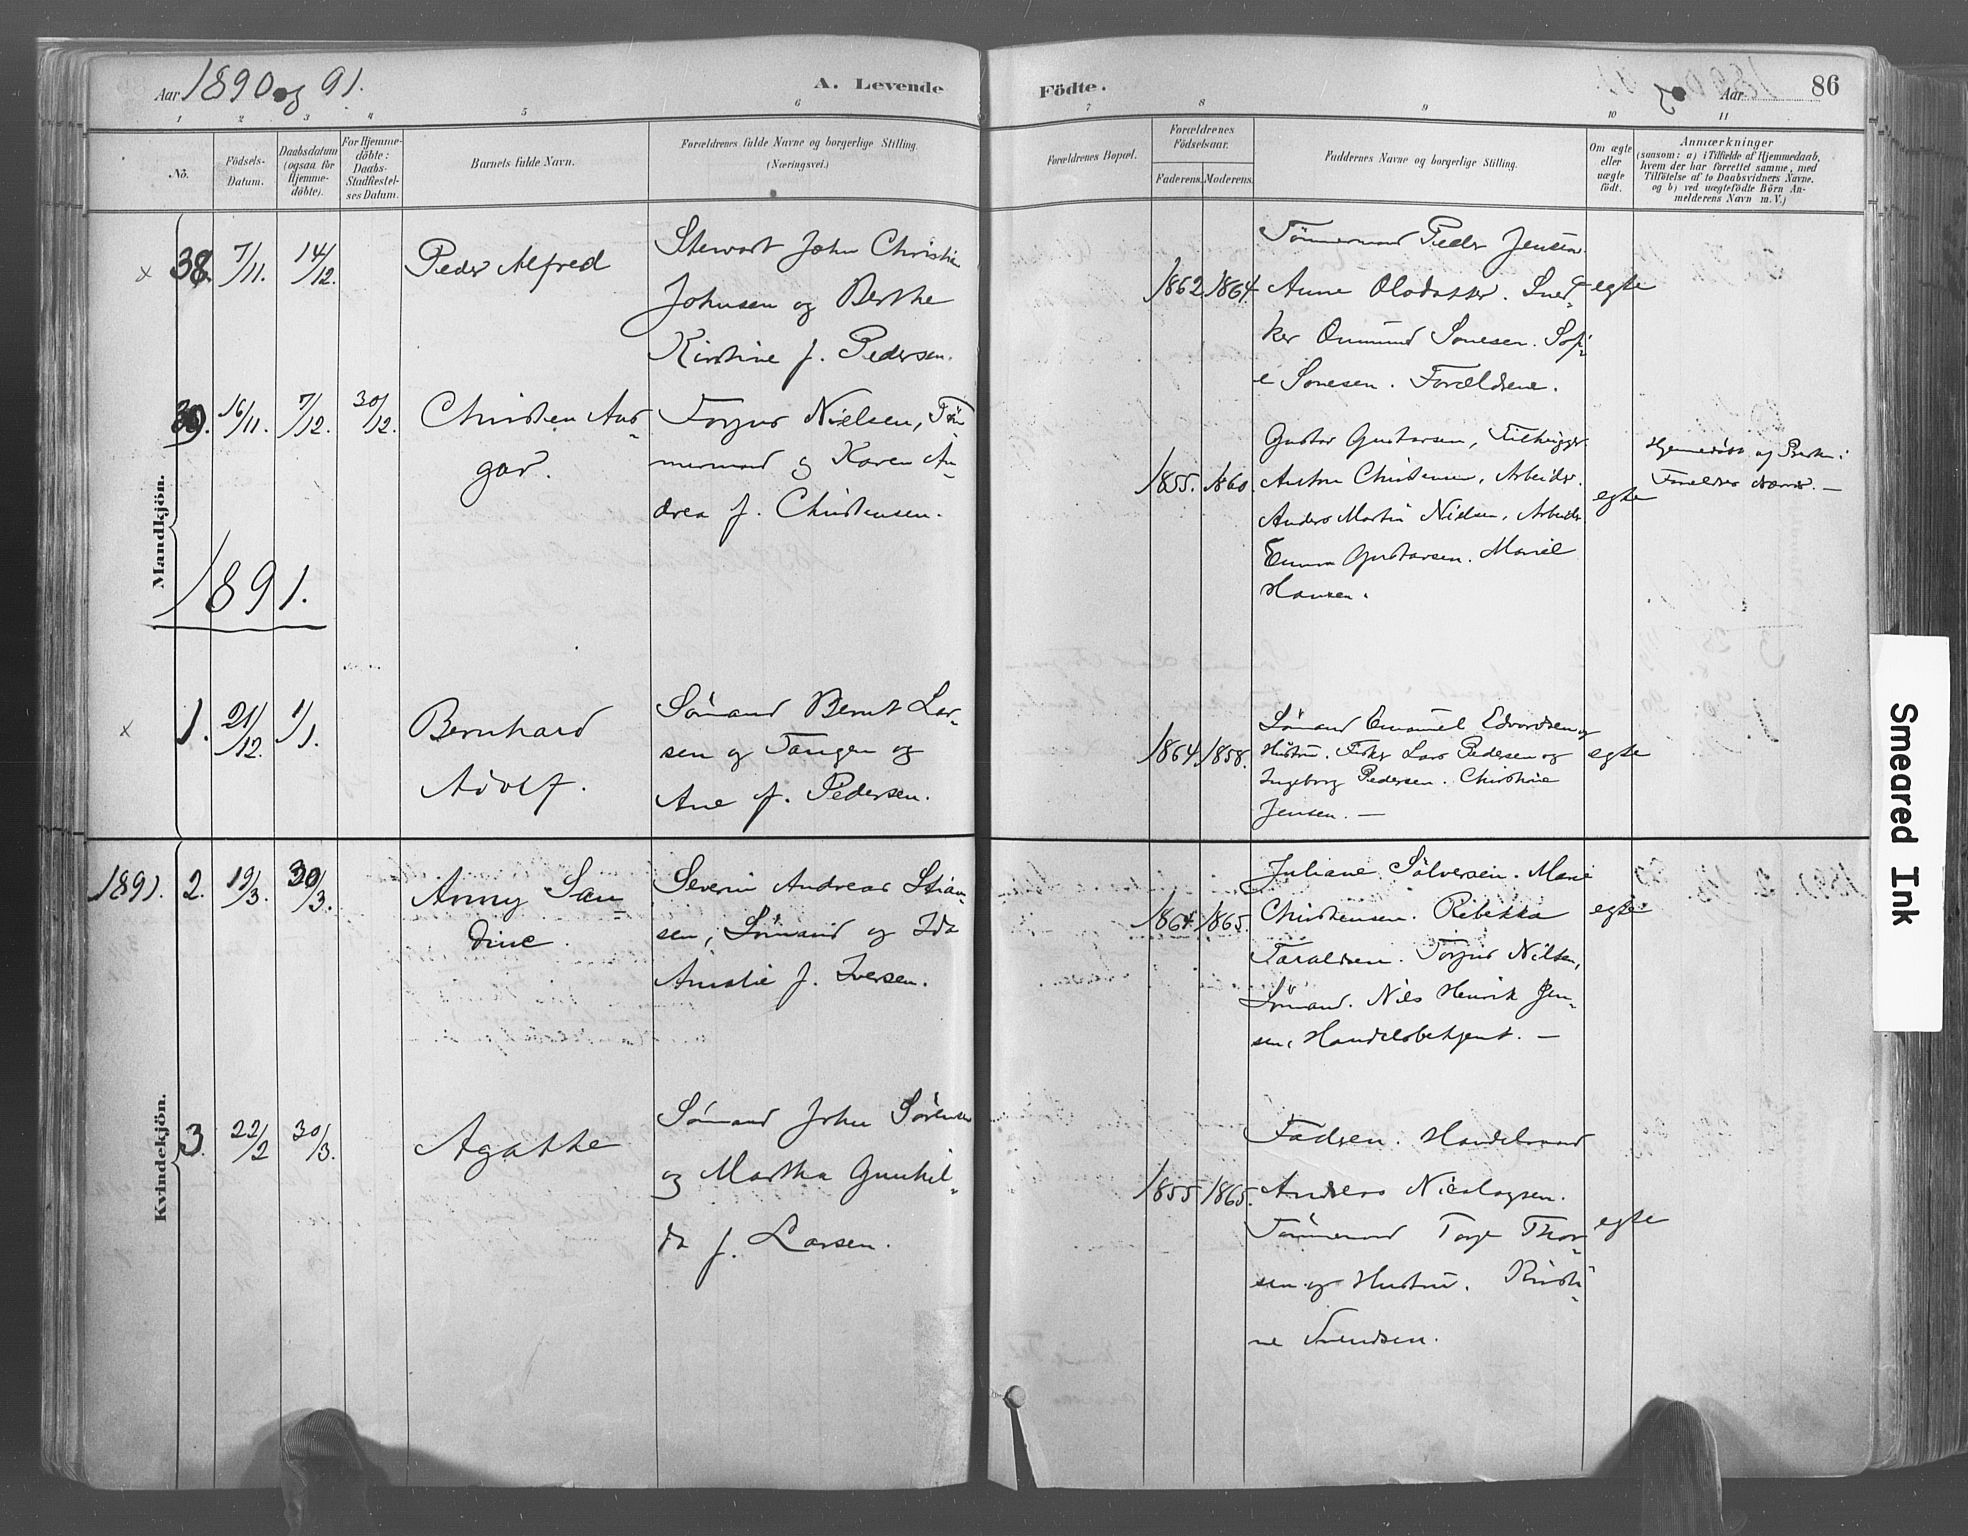 Aar 1890 og 91.
A. Levende
Födte.
Aar
86
1 2 3 4 5 6 7 8 9 10 11
No.
Födsels-
Datum.
Daabsdatum
(ogsaa for
Hjemme-
döbte).
For Hjemme-
döbte:
Daabs-
Stadfæstel-
ses Datum.
Barnets fulde Navn.
Forældrenes fulde Navne og borgerlige Stilling.
(Næringsvei.)
Forældrenes Bopæl.
Forældrenes
Födselsaar.
Faderens.
Moderens.
Faddernes Navne og borgerlige Stilling.
Om ægte
eller
uægte
födt.
Anmærkninger
(saasom: a) i Tilfælde af Hjemmedaab,
hvem der har forrettet samme, med
Tilföielse af to Daabsvidners Navne.
og b) ved uægtefödte Börn An-
melderens Navn m. V.)
Mandkjön.
x 38. 7/11. 14/12.
Peder Alfred
Stewart John Christian
Johnsen og Berthe
Kirstine f. Pedersen.
1862 1864.
Tömmermand Peder Jensen
Anne Olsdatter. Sned-
ker Onmund Sonesen. Sofi-
e Sonesen. Forældrene.
egte
39. 16/11. 7/12. 30/12.
Christen Ans-
gar.
Torjus Nielsen, Töm-
mermand og Karen An-
drea f. Christensen.
1855. 1860.
Gustav Gustavsen,
Anton Christensen, Arbeider.
Anders Martin Nielsen, Arbeider
Emma Gustavsen. Mariel
Hansen.
egte
Hjemmedöbt af
1891.
x 1. 21/12. 1/1.
Bernhard
Adolf.
Sömand Bernt Lar-
sen og Tangen og
Ane f. Pedersen.
1864. 1858.
Sömand Emanuel Edvardsen og
Hustru. Fisker Lars Pedersen og
Ingeborg Pedersen. Christine
Jensen. —
egte
Kvindekjön.
1891. 2. 19/3. 30/3.
Anny San-
dine.
Severin Andreas Stian-
sen, Sömand og Ida
Amalie f. Iversen.
1864. 1865.
Juliane Sölversen. Marie
Christensen. Rebekka
Taraldsen. Torjus Nilsen,
Sömand. Niels Henrik Jen-
sen, Handelsbetjent. —
egte
3. 22/2 30/3.
Agathe
Sömand John Sörensen
og Martha Gunhil-
da f. Larsen.
1855 1865.
Fadren. Handelsmand
Anders Nicolaysen.
Tömmermand Terje Thor-
sen og Hustru. Kirsti-
ne Svendsen.
egte
Smeared Ink